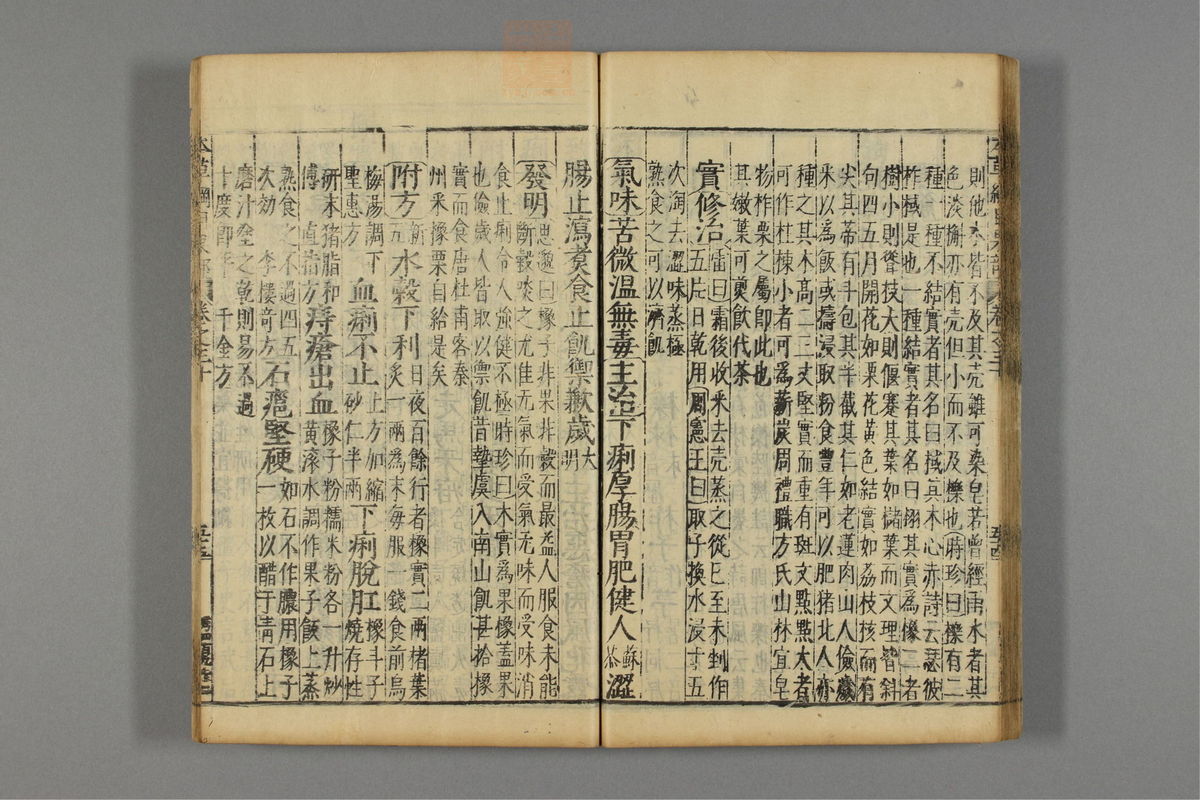 則他木皆不及其壳雖可染皂若曾經雨水者其
色淡槲亦有壳但小而不及櫟也時珍曰櫟有二
種一種不結實者其名曰棫其木心赤詩云瑟彼
柞棫是也一種結實者其名曰栩其實為橡二者
樹小則聳枝大則偃蹇其葉如櫧葉而文理皆斜
句四五月開花如栗花黃色結實如荔枝核而有
尖其蒂有斗包其半截其仁如老蓮肉山人儉歲
采以為飯或擣浸取粉食豐年可以肥猪北人亦
種之其木高二三丈堅實而重有斑文點點大者
可作柱棟小者可為薪炭周禮職方氏山林宜皂
物柞栗之屬即此也
其嫩葉可煎飲代茶
實修治雷曰霜後收采去壳蒸之從巳至未剉作
五片日乾用周憲王曰取子換水浸十五
次淘去澀味蒸極
熟食之可以濟飢
氣味苦微溫無毒主治下痢厚腸胃肥健人蘇恭澀
腸止瀉煮食止飢禦歉歲大明
發明思邈曰橡子非果非穀而最益人服食未能
斷穀啖之尤佳无氣而受氣无味而受味消
食止痢令人強健不極時珍曰木實為果橡蓋果
也儉歲人皆取以禦飢昔摯虞入南山飢甚拾橡
實而食唐杜甫客秦
州采橡栗自給是矣
附方新五水穀下利日夜百餘行者橡實二兩楮葉
炙一兩為末每服一錢食前烏
梅湯調下血痢不止上方加縮
聖惠方砂仁半兩下痢脫肛橡斗子
燒存性
研末猪脂和
傅直指方痔瘡出血橡子粉糯米粉各一升炒
黃滾水調作果子飯上蒸
熟食之不過四五
次効李樓奇方石㿈堅硬如石不作膿用橡子
一枚以醋于青石上
磨汁塗之乾則易不過
十度即平千金方